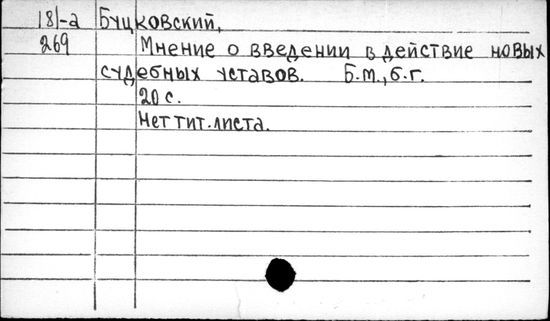 181-а Буцковский,
269 Мнение о введении в действие новых
судебных уставов. Б.м., б.г.
20 с.
Нет тит. листа.